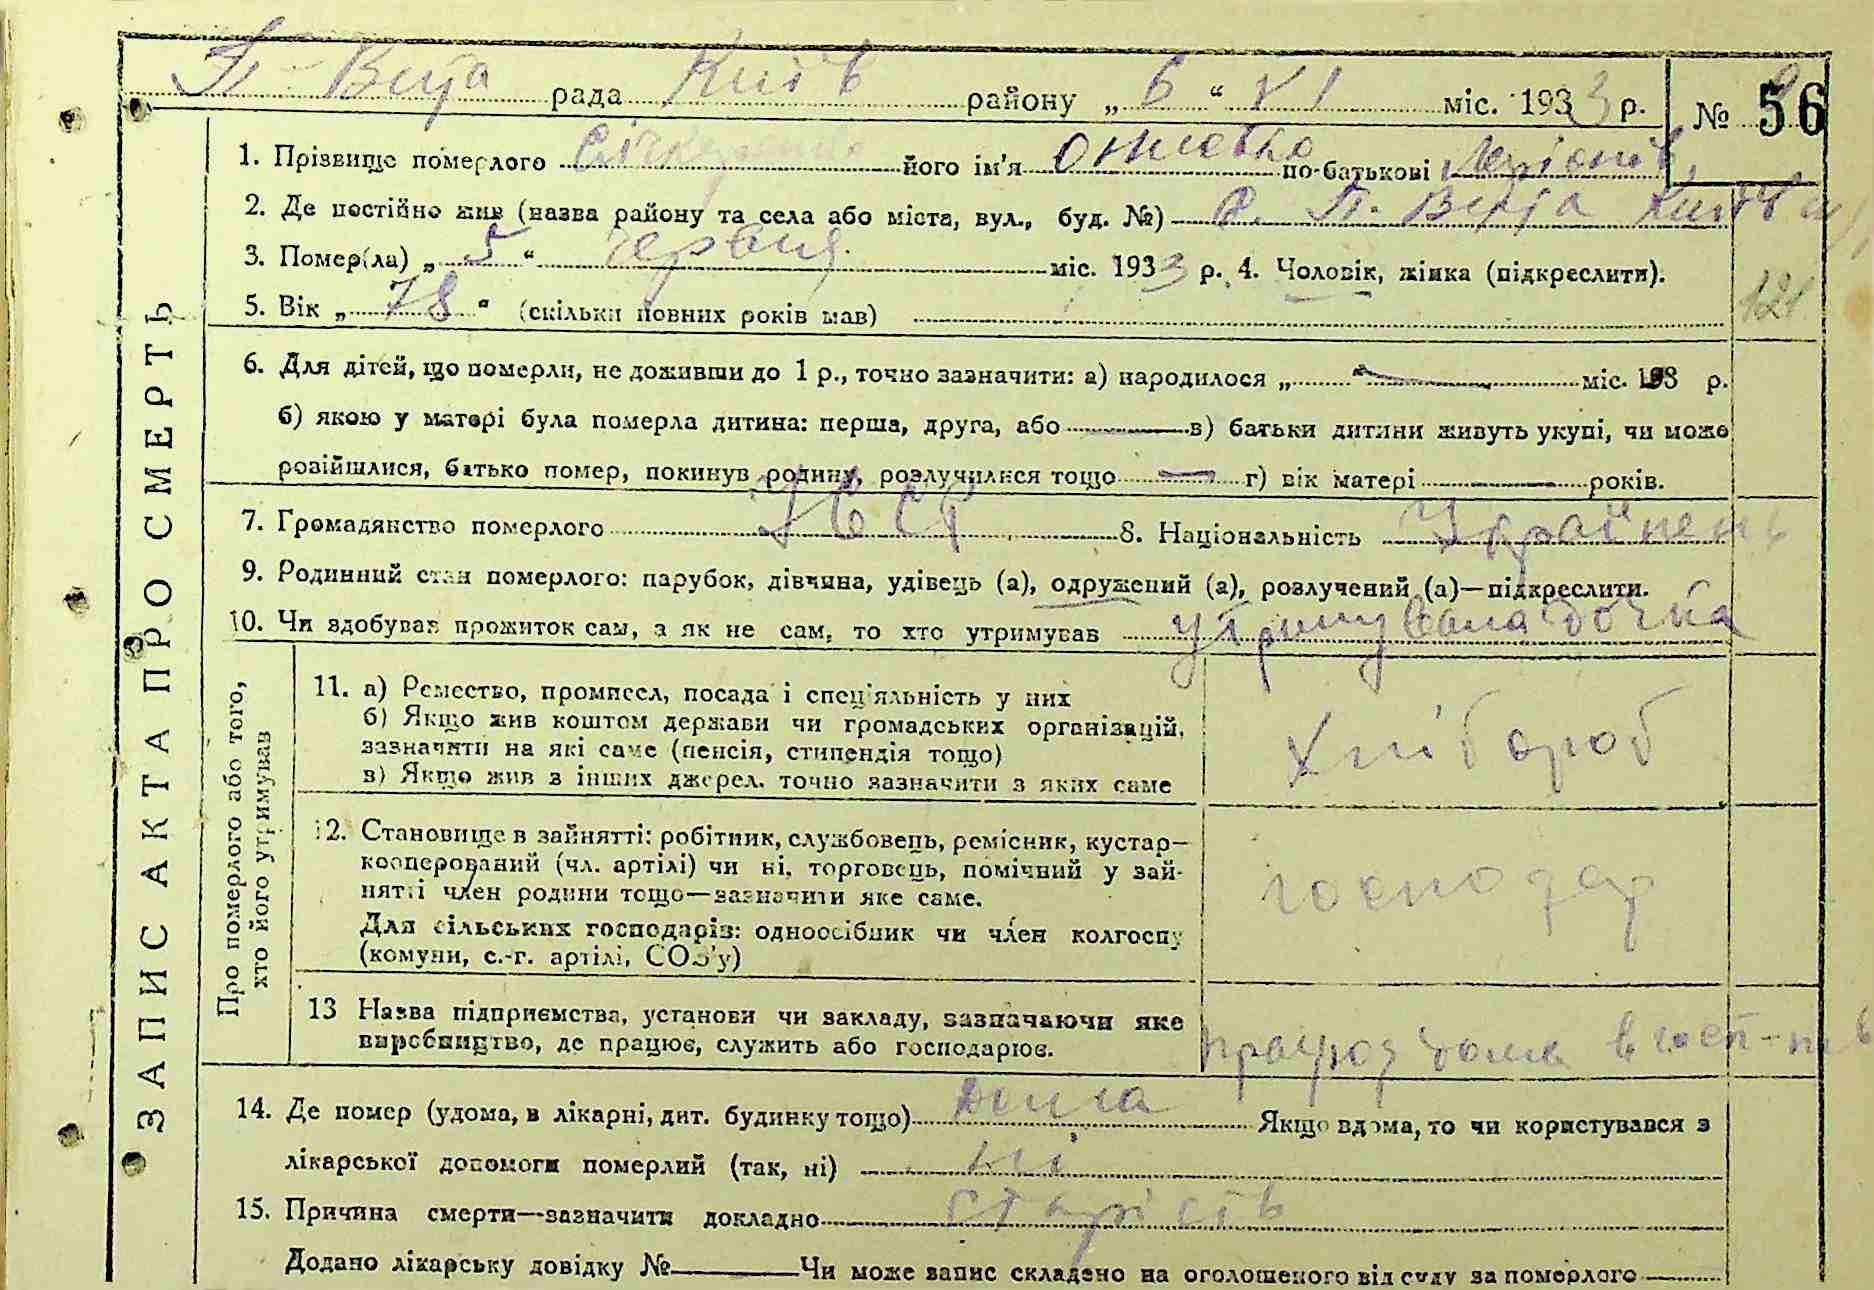 П-Вета рада Київ району „ 6 “ VI міс. 1933 р. № 56
1. Прізвище померлого його ім'я по-батькові
2. Де постійно жив (назва району та села або міста, вул., буд. №) с. П. Вета Київ
3. Помер(ла) „ 5 “ червня міс. 1933 р. 4. Чоловік, жінка (підкреслити).
121
5. Вік „ 78 “ (скільки повних років мав)
6. Для дітей, що померли, не доживши до 1 р., точно зазначити: а) народилося „ “ міс. 193 р.
б) якою у матері була померла дитина: перша, друга, або в) батьки дитини живуть укупі, чи може
розійшлися, батько помер, покинув родину, розлучилися тощо г) вік матері років.
7. Громадянство померлого УССР 8. Національність Українець
9. Родинний стан померлого: парубок, дівчина, удівець (а), одружений (а), розлучений (а)—підкреслити.
10. Чи здобував прожиток сам, а як не сам, то хто утримував утримувала дочка
ЗАПИС АКТА ПРО СМЕРТЬ
Про померлого або того,
хто його утримував
11. а) Ремество, промисел, посада і спец'яльність у них
б) Якщо жив коштом держави чи громадських організацій,
зазначити на які саме (пенсія, стипендія тощо)
в) Якщо жив з інших джерел, точно зазначити з яких саме
хлібороб
12. Становище в зайнятті: робітник, службовець, ремісник, кустар—
кооперований (чл. артілі) чи ні, торговець, помічний у зай-
нятті член родини тощо—зазначити яке саме.
Для сільських господарів: одноосібник чи член колгоспу
(комуни, с.-г. артілі, СОЗ'у)
господар
13 Назва підприємства, установи чи закладу, зазначаючи яке
виробництво, де працює, служить або господарює.
працює дома в госп-тв
14. Де помер (удома, в лікарні, дит. будинку тощо) дома Якщо вдома, то чи користувався з
лікарської допомоги померлий (так, ні) ні
15. Причина смерти—зазначити докладно старість
Додано лікарську довідку № Чи може запис складено на оголошеного від суду за померлого